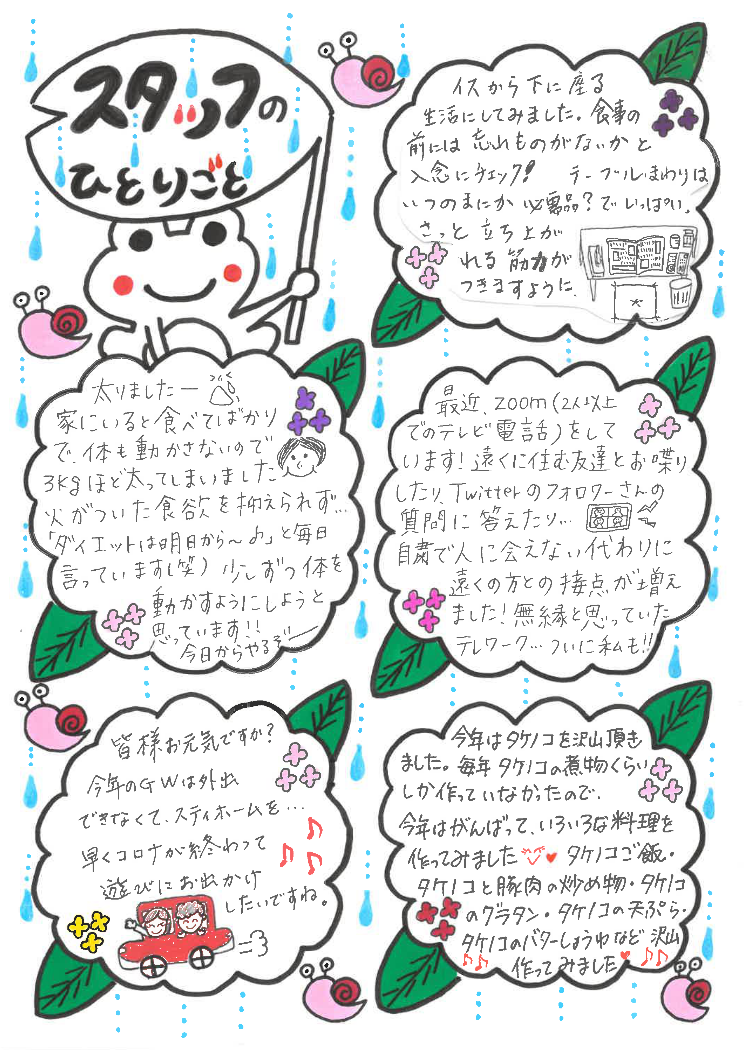 スタッフの
ひとりごと
イスから下に座る
生活にしてみました。食事の
前には忘れものがないかと
入念にチェック! テーブルまわりは
いつのまにか必需品?でいっぱい。
さっと立ち上が
れる筋力が
つきますように。
太りましたー
家にいると食べてばかり
で、体も動かさないので
3kgほど太ってしまいました
火がついた食欲を抑えられず…
「ダイエットは明日から〜♪」と毎日
言っています(笑) 少しずつ体を
動かすようにしようと
思っています!!
今日からやるぞー
最近、zoom(2人以上
でのテレビ電話)をして
います!遠くに住む友達とお喋り
したり、Twitterのフォロワーさんの
質問に答えたり…
自粛で人に会えない代わりに
遠くの方との接点が増え
ました!無縁と思っていた
テレワーク…ついに私も!!
皆様お元気ですか?
今年のGWは外出
できなくて、スティホームを…
早くコロナが終わって
遊びにお出かけ
したいですね。
今年はタケノコを沢山頂き
ました。毎年タケノコの煮物くらい
しか作っていなかったので、
今年はがんばって、いろいろな料理を
作ってみました♥ タケノコご飯・
タケノコと豚肉の炒め物・タケノコ
のグラタン・タケノコの天ぷら・
タケノコのバターしょうゆなど沢山
作ってみました♥